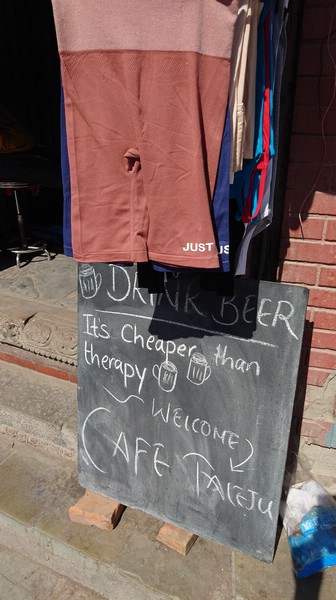 JUST
JUS
DRINK BEER
It's Cheaper than
therapy
WELCOME
CAFE TALEJU